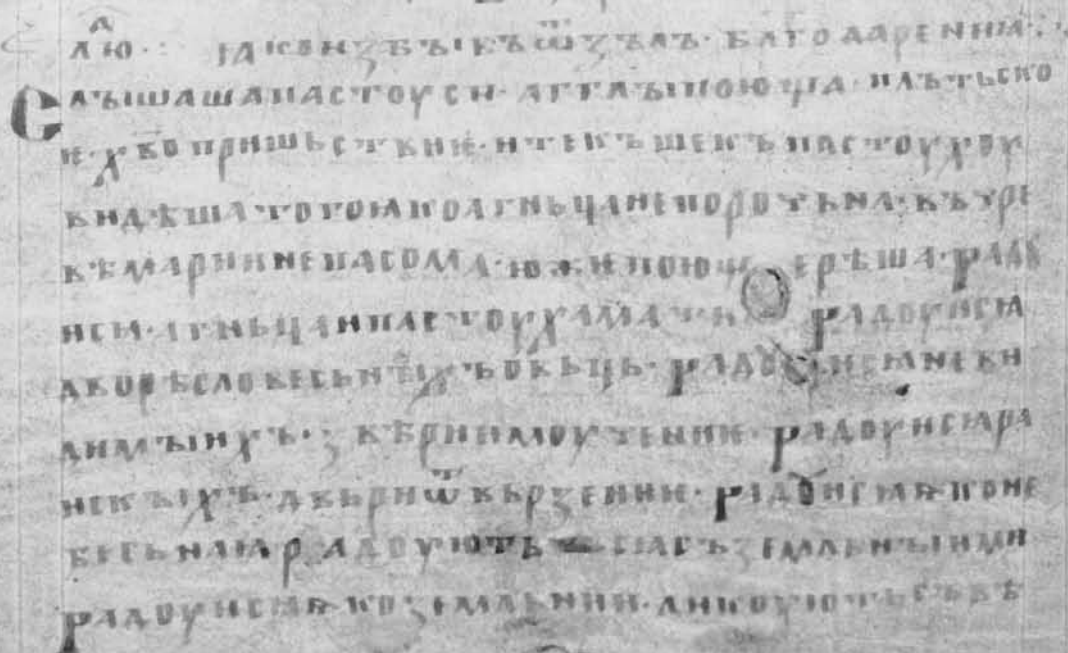 лю · ꙗко избꙑвъ ѿ зълъ · благодарениꙗ ·:·
Слꙑшаша пастоуси · агглꙑ поюща · плътьско
ѥ · хво пришьствиѥ · и текъше къ пастоухоу
видѣша того ꙗко агньца непорочьна · въ чрѣ
вѣ мариинѣ пасома · юже поюще рѣша · радоу
исѧ · агньца и пастоуха мати радоуисѧ
дворѣ словесьнꙑхъ овьць · радоуисѧ неви
димꙑихъ · звѣрии моучение · радоуисѧ ра
искꙑхъ · двьрии ѿвьрзение · радоуисѧ ꙗко не
бесьнаꙗ радоуютьсѧ съ земльнꙑими
радоуисѧ ꙗко земльнии · ликоуютьсъвѣ